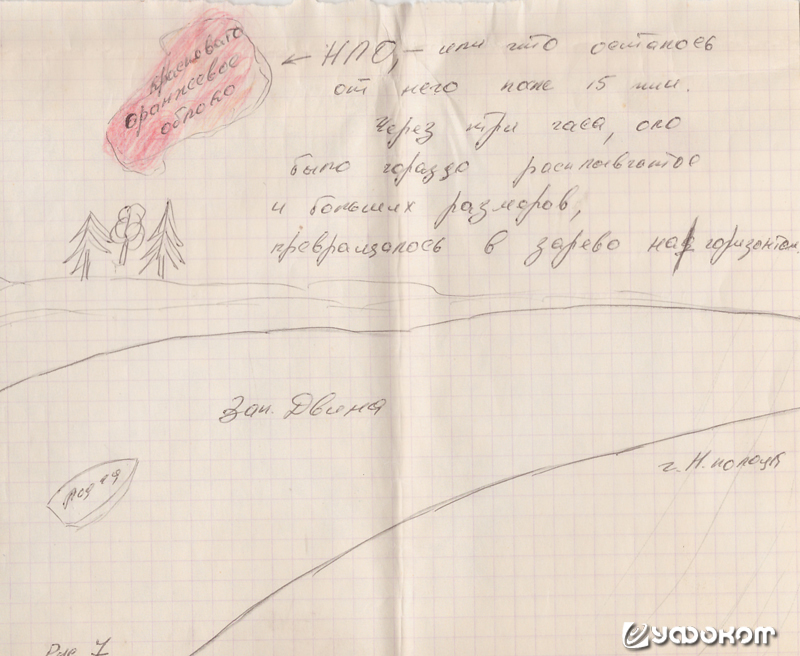 красновато
оранжевое
облако
← НЛО, – или что осталось
от него позже 15 мин.
Через три часа, оно
было гораздо расплывчатое
и больших размеров,
превращалось в зарево над горизонтом.
Зап. Двина
лодка
г. Н. Полоцк
Рис 1
Уфоком